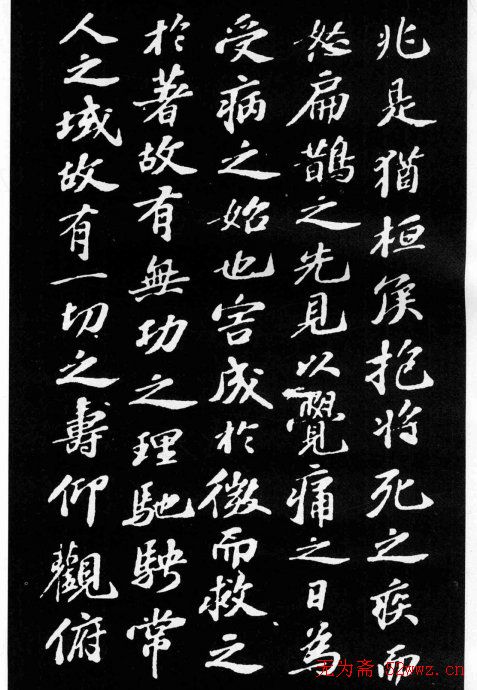 兆是猶桓侯抱將死之疾而
怒扁鵲之先見以覺痛之日為
受病之始也害成於微而救之
於著故有無功之理馳駛常
人之域故有一切之壽仰觀俯
无为斋 52wwz.cn